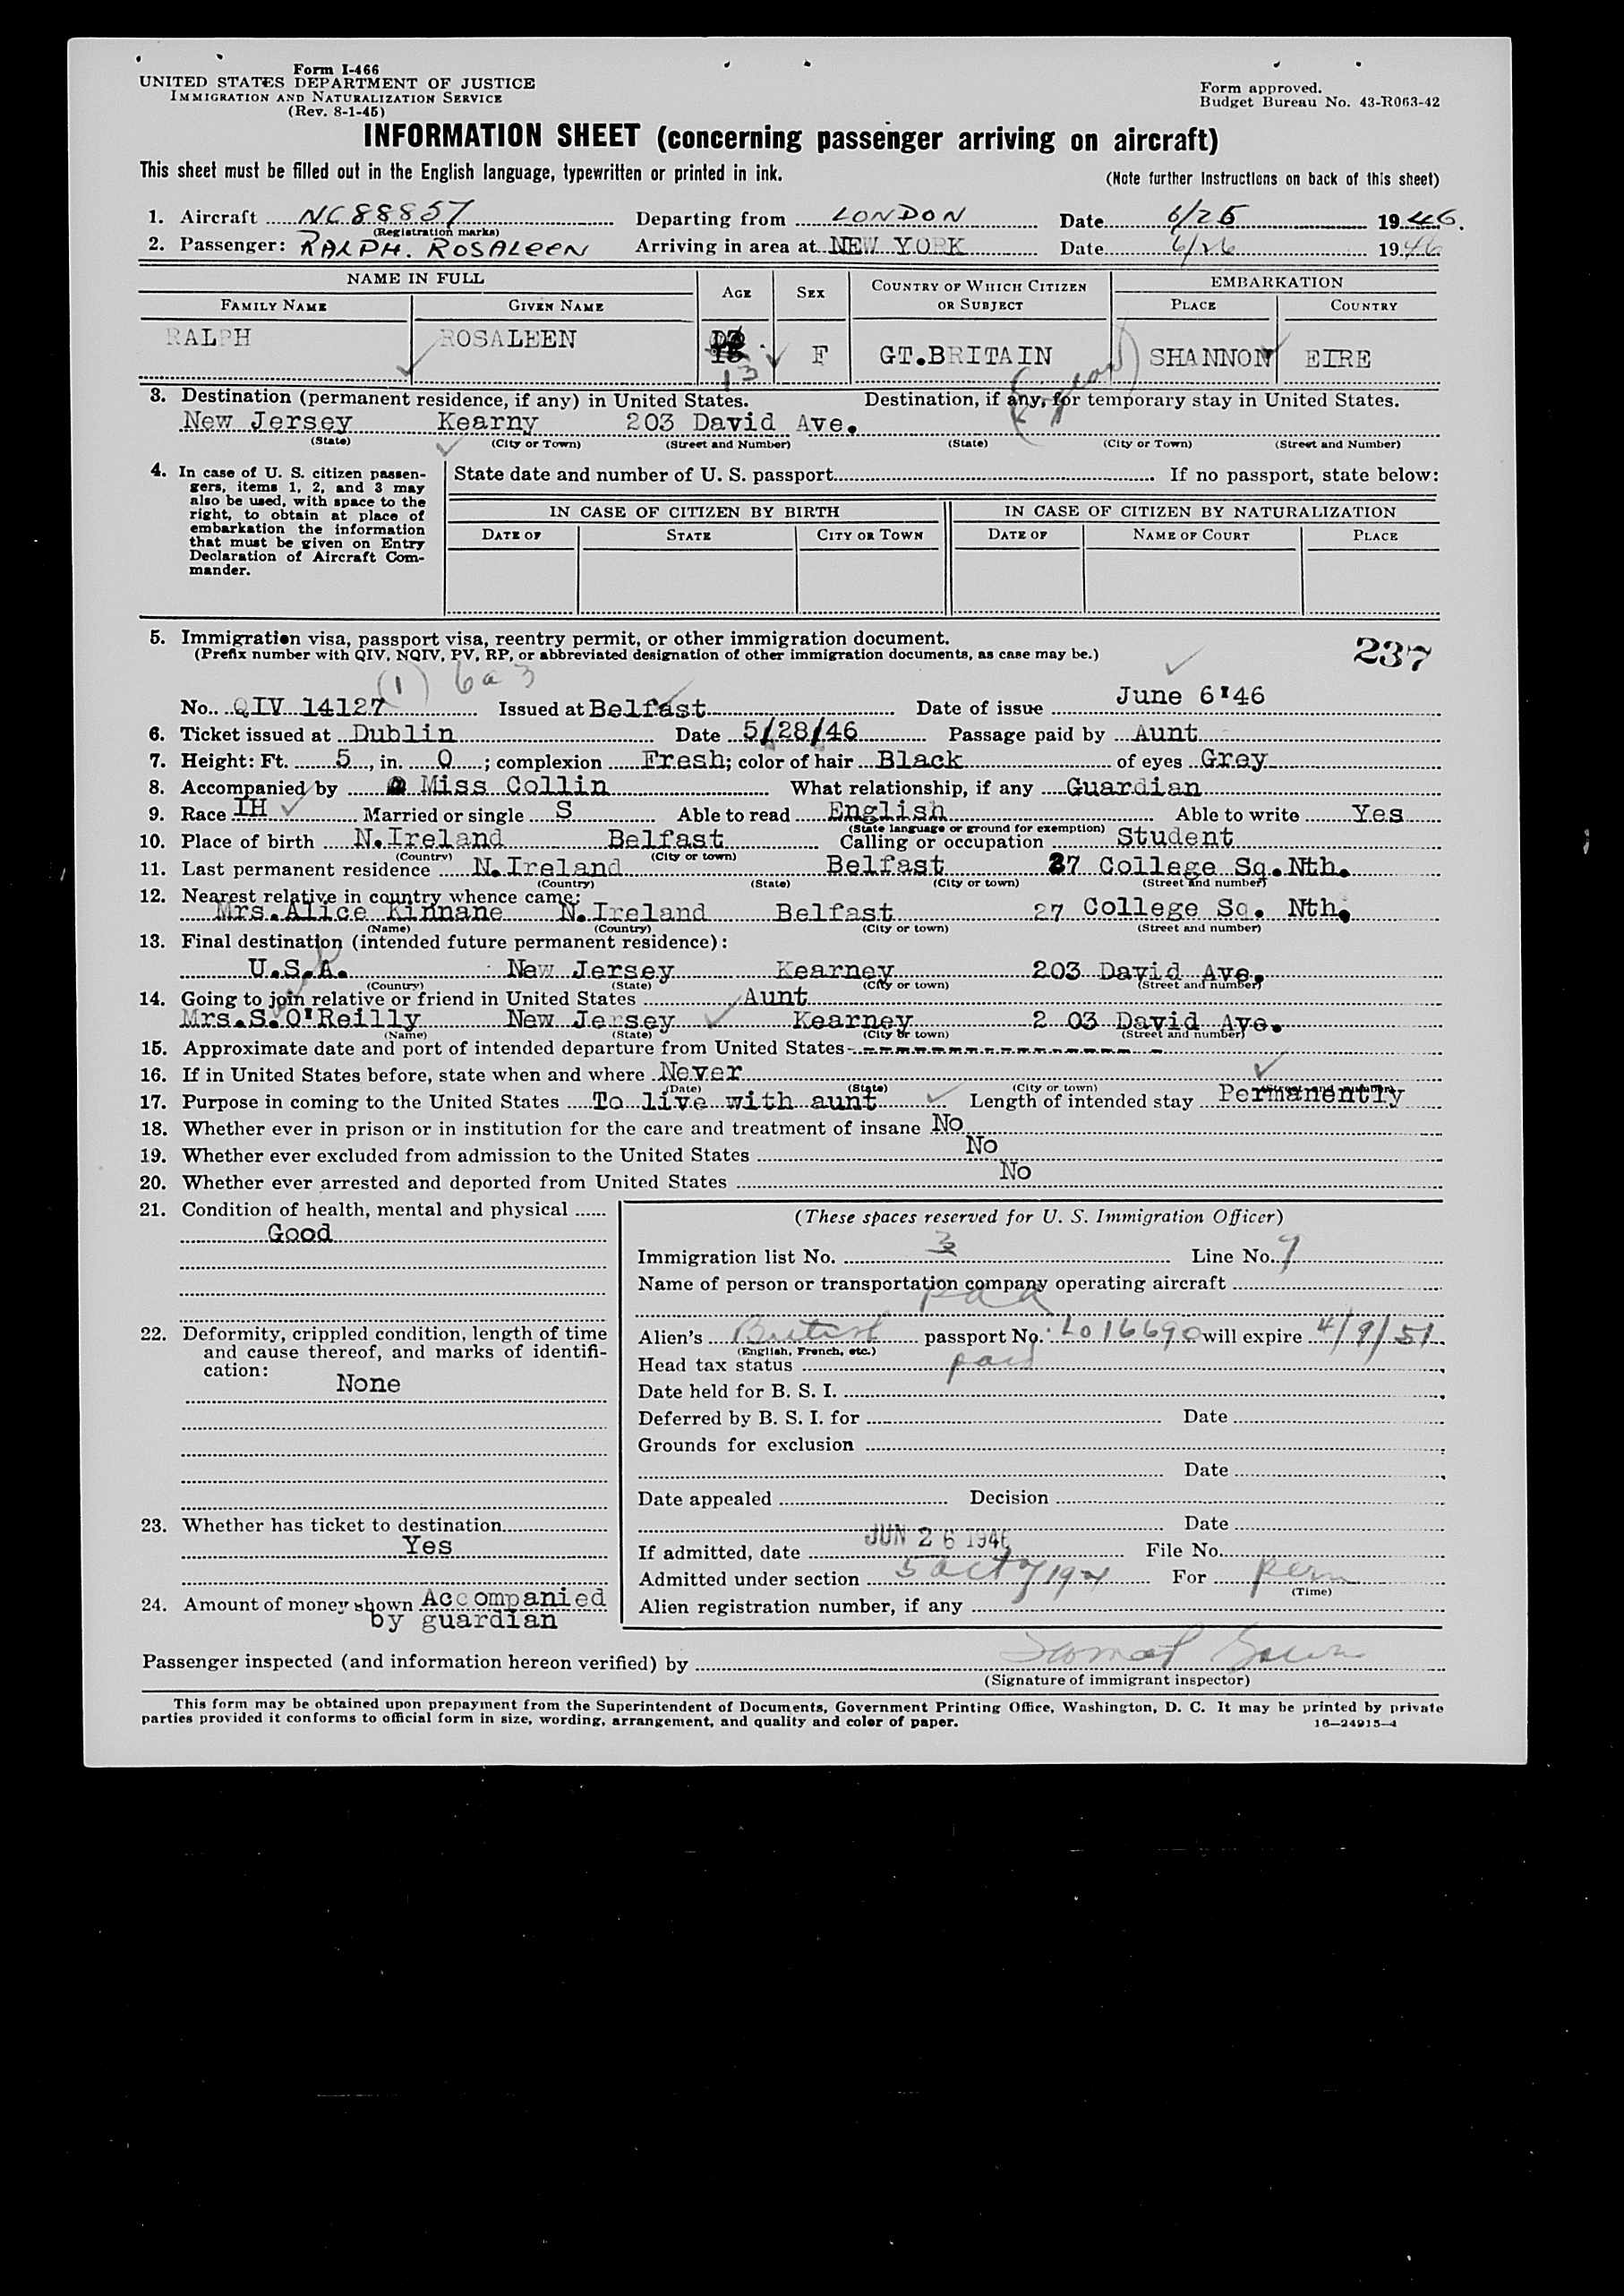 Form I-466
UNITED STATES DEPARTMENT OF JUSTICE
IMMIGRATION AND NATURALIZATION SERVICE
(Rev. 8-1-45)
Form approved.
Budget Bureau No. 43-R063-42
INFORMATION SHEET (concerning passenger arriving on aircraft)
This sheet must be filled out in the English language, typewritten or printed in ink.
(Note further Instructions on back of this sheet)
1. Aircraft NC88857 Departing from LONDON Date 6/25 1946.
(Registration marks)
2. Passenger: RALPH. ROSALEEN Arriving in area at NEW YORK Date 6/26 1946
NAME IN FULL AGE SEX COUNTRY OF WHICH CITIZEN OR SUBJECT EMBARKATION
FAMILY NAME GIVEN NAME PLACE COUNTRY
RALPH ROSALEEN 13 F GT.BRITAIN SHANNON EIRE
3. Destination (permanent residence, if any) in United States. Destination, if any, for temporary stay in United States.
New Jersey Kearny 203 David Ave.
(State) (City or Town) (Street and Number) (State) (City or Town) (Street and Number)
4. In case of U. S. citizen passengers, items 1, 2, and 3 may also be used, with space to the right, to obtain at place of embarkation the information that must be given on Entry Declaration of Aircraft Commander.
State date and number of U. S. passport If no passport, state below:
IN CASE OF CITIZEN BY BIRTH IN CASE OF CITIZEN BY NATURALIZATION
DATE OF STATE CITY OR TOWN DATE OF NAME OF COURT PLACE
5. Immigration visa, passport visa, reentry permit, or other immigration document.
(Prefix number with QIV, NQIV, PV, RP, or abbreviated designation of other immigration documents, as case may be.)
237
(1) 6a3
No. QIV 14127 Issued at Belfast Date of issue June 6'46
6. Ticket issued at Dublin Date 5/28/46 Passage paid by Aunt
7. Height: Ft. 5, in. 0; complexion Fresh; color of hair Black of eyes Grey
8. Accompanied by Miss Collin What relationship, if any Guardian
9. Race IH Married or single S Able to read English Able to write Yes
(State language or ground for exemption)
10. Place of birth N.Ireland Belfast Calling or occupation Student
(Country) (City or town)
11. Last permanent residence N.Ireland Belfast 27 College Sq.Nth.
(Country) (State) (City or town) (Street and number)
12. Nearest relative in country whence came:
Mrs.Alice Kinnane N.Ireland Belfast 27 College Sq. Nth.
(Name) (Country) (City or town) (Street and number)
13. Final destination (intended future permanent residence):
U.S.A. New Jersey Kearney 203 David Ave.
(Country) (State) (City or town) (Street and number)
14. Going to join relative or friend in United States Aunt
Mrs.S.O'Reilly New Jersey Kearney 2 03 David Ave.
(Name) (State) (City or town) (Street and number)
15. Approximate date and port of intended departure from United States
16. If in United States before, state when and where Never
(Date) (State) (City or town) (Street and number)
17. Purpose in coming to the United States To live with aunt Length of intended stay Permanently
18. Whether ever in prison or in institution for the care and treatment of insane No
19. Whether ever excluded from admission to the United States No
20. Whether ever arrested and deported from United States No
21. Condition of health, mental and physical
Good
22. Deformity, crippled condition, length of time and cause thereof, and marks of identification:
None
23. Whether has ticket to destination
Yes
24. Amount of money shown Accompanied by guardian
(These spaces reserved for U. S. Immigration Officer)
Immigration list No. 3 Line No. 7
Name of person or transportation company operating aircraft
PAA
Alien's British passport No. Lo16690 will expire 4/9/51
(English, French, etc.)
Head tax status paid
Date held for B. S. I.
Deferred by B. S. I. for Date
Grounds for exclusion
Date
Date appealed Decision
Date
If admitted, date JUN 26 1946 File No.
Admitted under section 5 act of 1924 For perm
(Time)
Alien registration number, if any
Passenger inspected (and information hereon verified) by
(Signature of immigrant inspector)
This form may be obtained upon prepayment from the Superintendent of Documents, Government Printing Office, Washington, D. C. It may be printed by private
parties provided it conforms to official form in size, wording, arrangement, and quality and color of paper.
16—24915-4